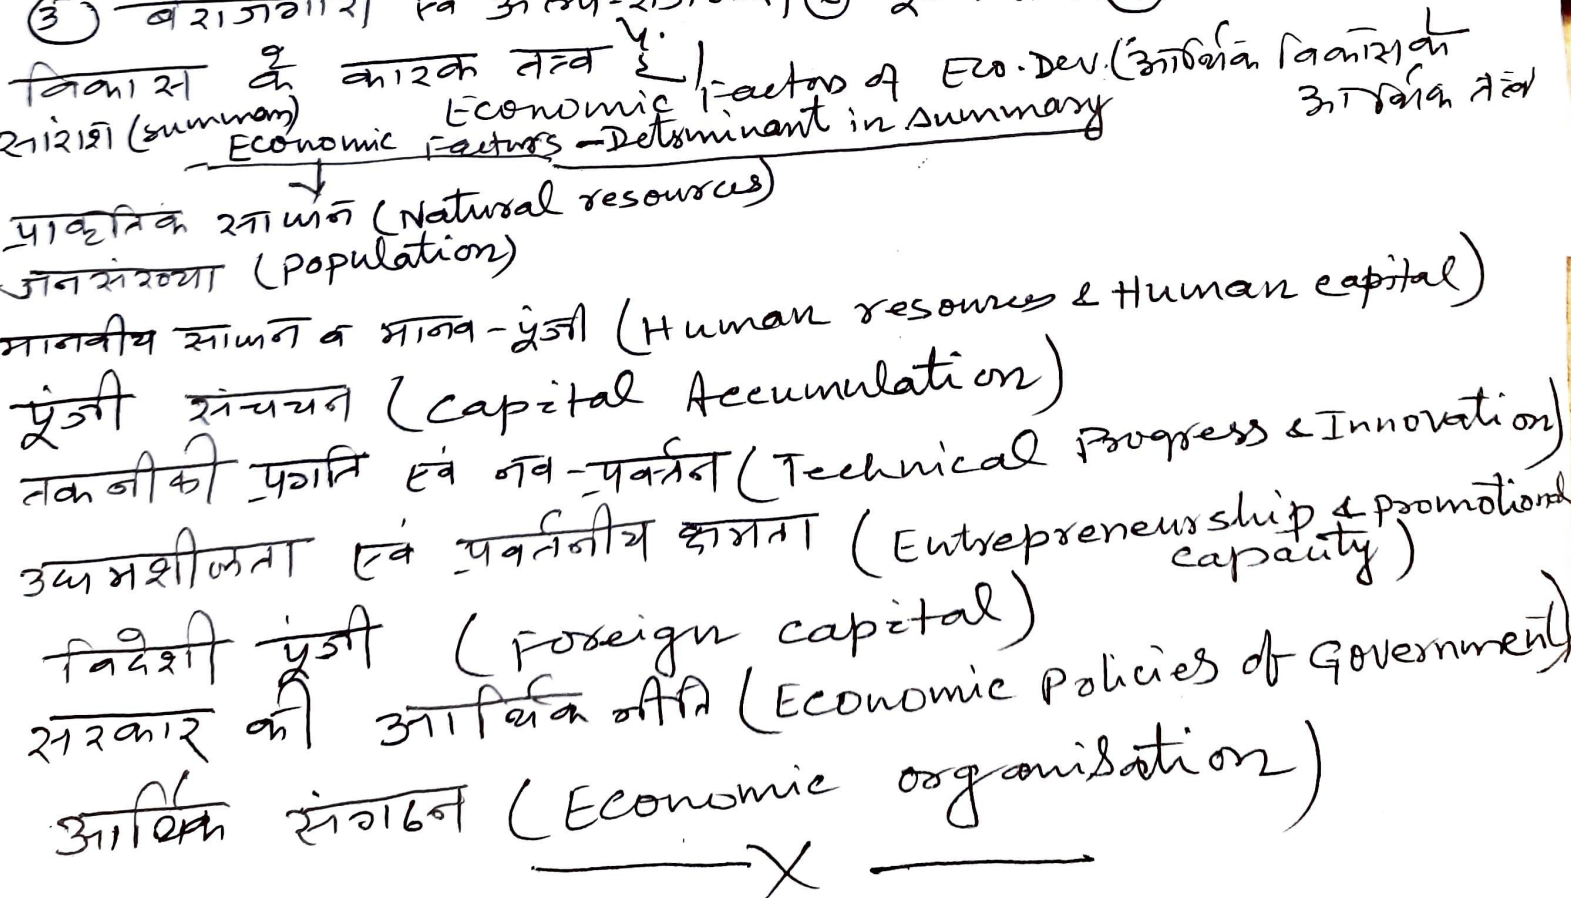 ③ बेरोजगारी एवं अल्प-
विकास के कारक तत्व हैं। Economic Factors of Eco. Dev. (आर्थिक विकास के आर्थिक तत्व
सारांश (summary) Economic Factors - Determinant in summary
↓
प्राकृतिक साधन (Natural resources)
जनसंख्या (population)
मानवीय साधन व मानव-पूंजी (Human resources & Human capital)
पूंजी संचयन (Capital Accumulation)
तकनीकी प्रगति एवं नव-प्रवर्तन (Technical Progress & Innovation)
उद्यमशीलता एवं प्रवर्तनीय क्षमता (Entrepreneurship & promotional capacity)
विदेशी पूंजी (Foreign capital)
सरकार की आर्थिक नीति (Economic Policies of Government)
आर्थिक संगठन (Economic organisation)
—X—